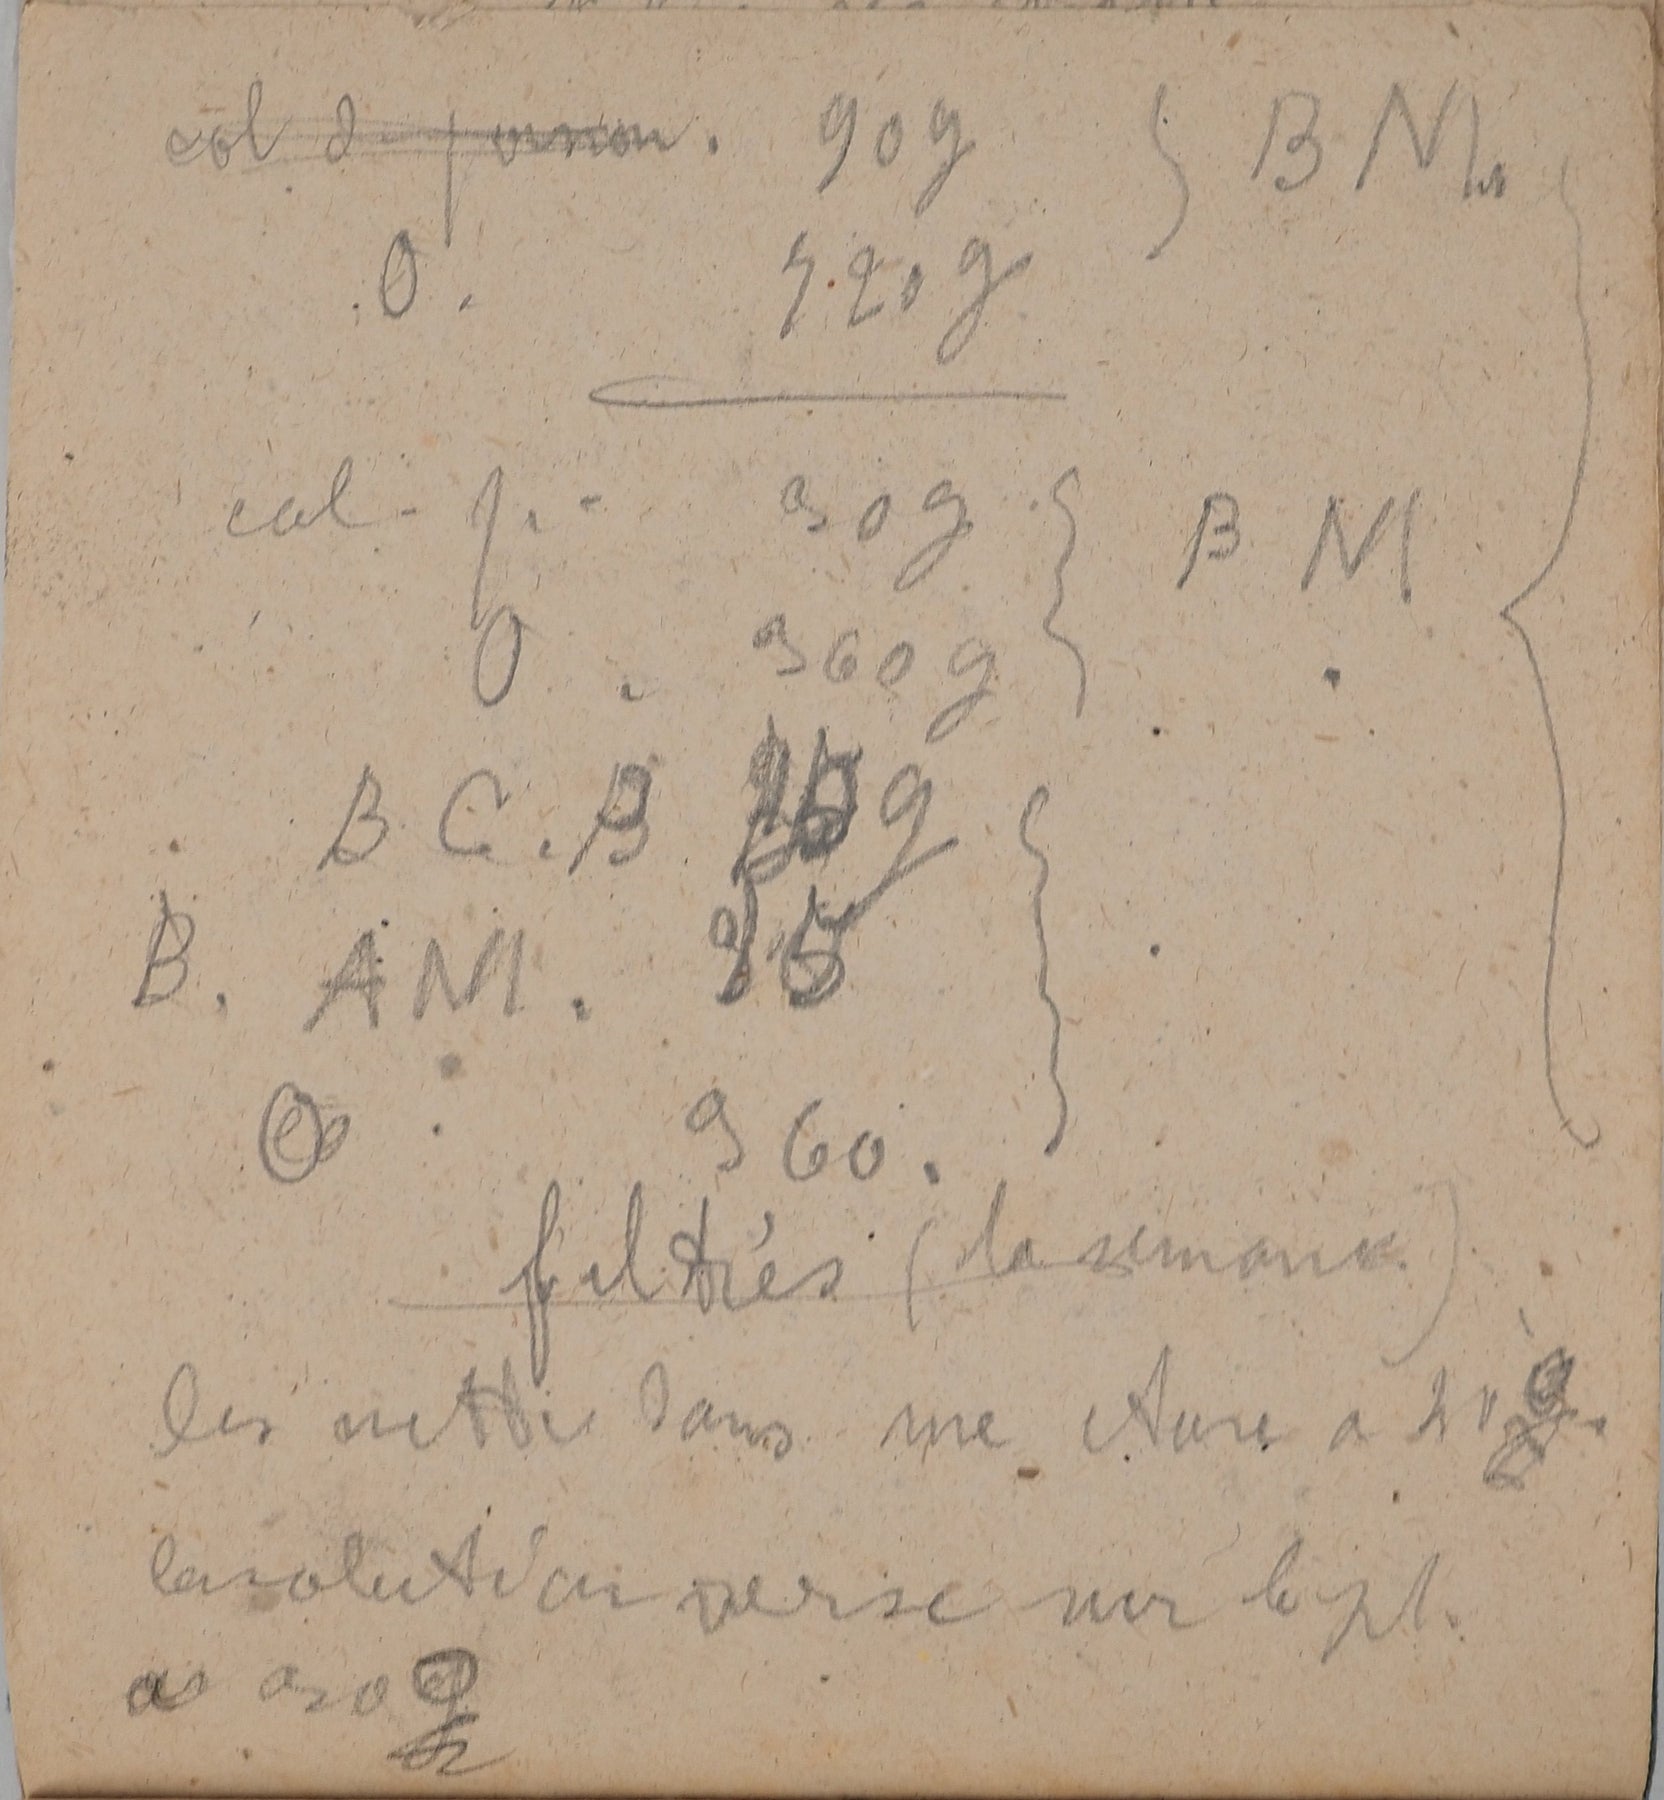 col d. poisson. 90g } BM.
O. 720g
col. p. 30g } B M
O. 360g
B C. B g
B. AM. 35
O 360.
filtrés (la semaine)
les mettre dans une étuve a 20g.
la solution versé sur le pl.
a 30g